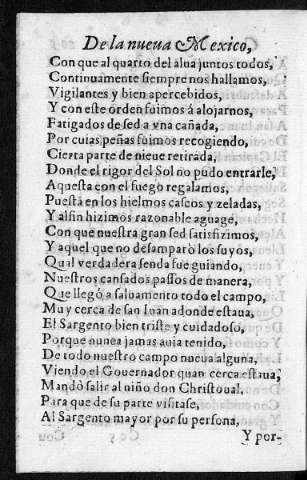 De la nueua Mexico,
Con que al quarto del alua juntos todos,
Continuamente siempre nos hallamos,
Vigilantes y bien apercebidos,
Y con este orden fuimos á alojarnos,
Fatigados de sed a vna cañada,
Por cuias peñas fuimos recogiendo,
Cierta parte de nieue retirada,
Donde el rigor del Sol no pudo entrarle,
Aquesta con el fuego regalamos,
Puesta en los hielmos cascos y zeladas,
Y alfin hizimos razonable aguage,
Con que nuestra gran sed satisfizimos,
Y aquel que no desamparò los suyos,
Qual verdadera senda fue guiando,
Nuestros cansados passos de manera,
Que llegó a saluamento todo el campo,
Muy cerca de san Iuan adonde estaua,
El Sargento bien triste y cuidadoso,
Porque nunca jamas auia tenido,
De todo nuestro campo nueua alguna,
Viendo el Gouernador quan cerca estaua,
Mandò salir al niño don Christoual,
Para que de su parte visitase,
Al Sargento mayor por su persona,
Y por-